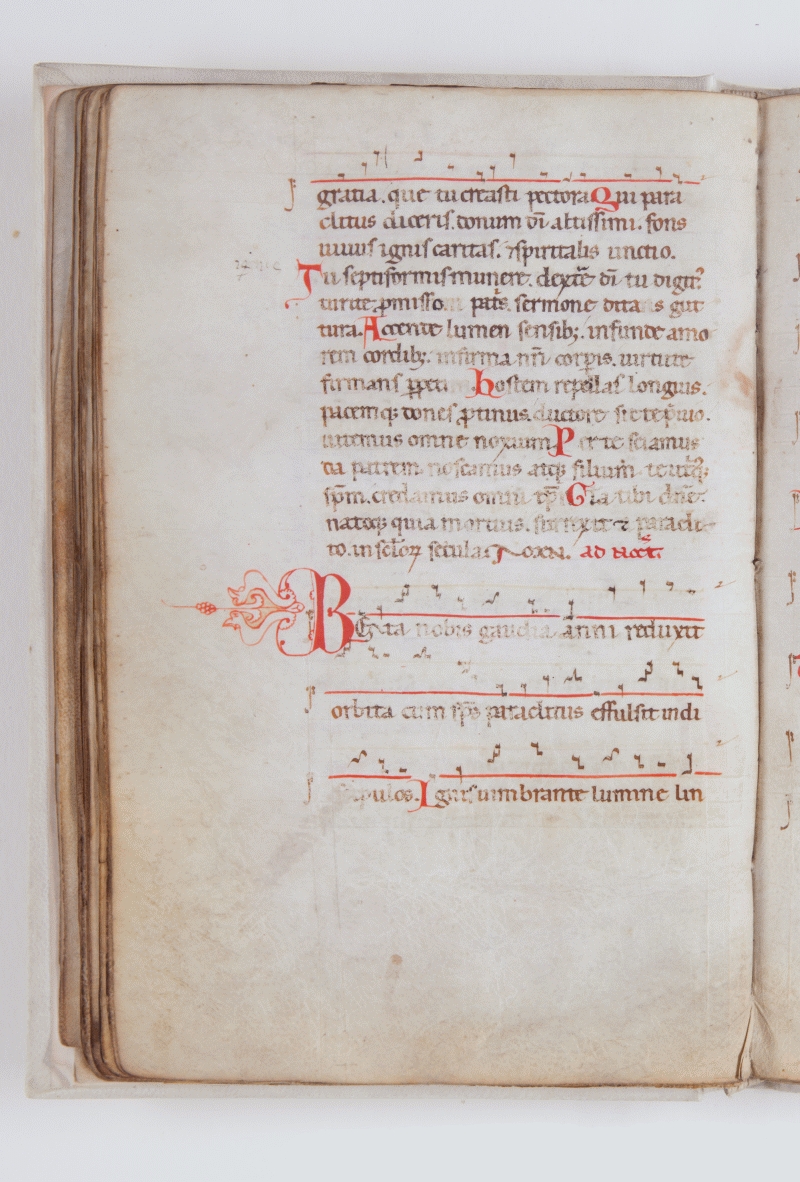 gratia. que tu creasti pectora Qui para
clitus diceris. donum dī altissimi. fons
uiuus ignis caritas. ⁊ spiritalis unctio.
Tu septiformis munere. dextē dī tu digit᷒
uirtute ꝓmisso patˢ. sermone ditans gut
tura. Accende lumen sensibꝫ. infunde amo
rem cordibꝫ. infirma nr̄i corꝑis. uirtute
firmans ꝑpeti. hostem repellas longius.
pacemqꝫ dones ꝓtinus. ductore sic te p̄uio.
uitemus omne noxium. Per te sciamus
da patrem noscamus atqꝫ filium te utqꝫ
sp̄m. credamus omni tp̄r Gła tibi dn̄e
natoqꝫ quia mortuis. surrexit ⁊ paracli
to. in sclōꝝ secula. NoxN. ad noct̄.
BEata nobis gaudia anni reduxit
orbita cum sp̄s paraclitus effulsit in di
scipulos. Ignis uimbrante lumine lin